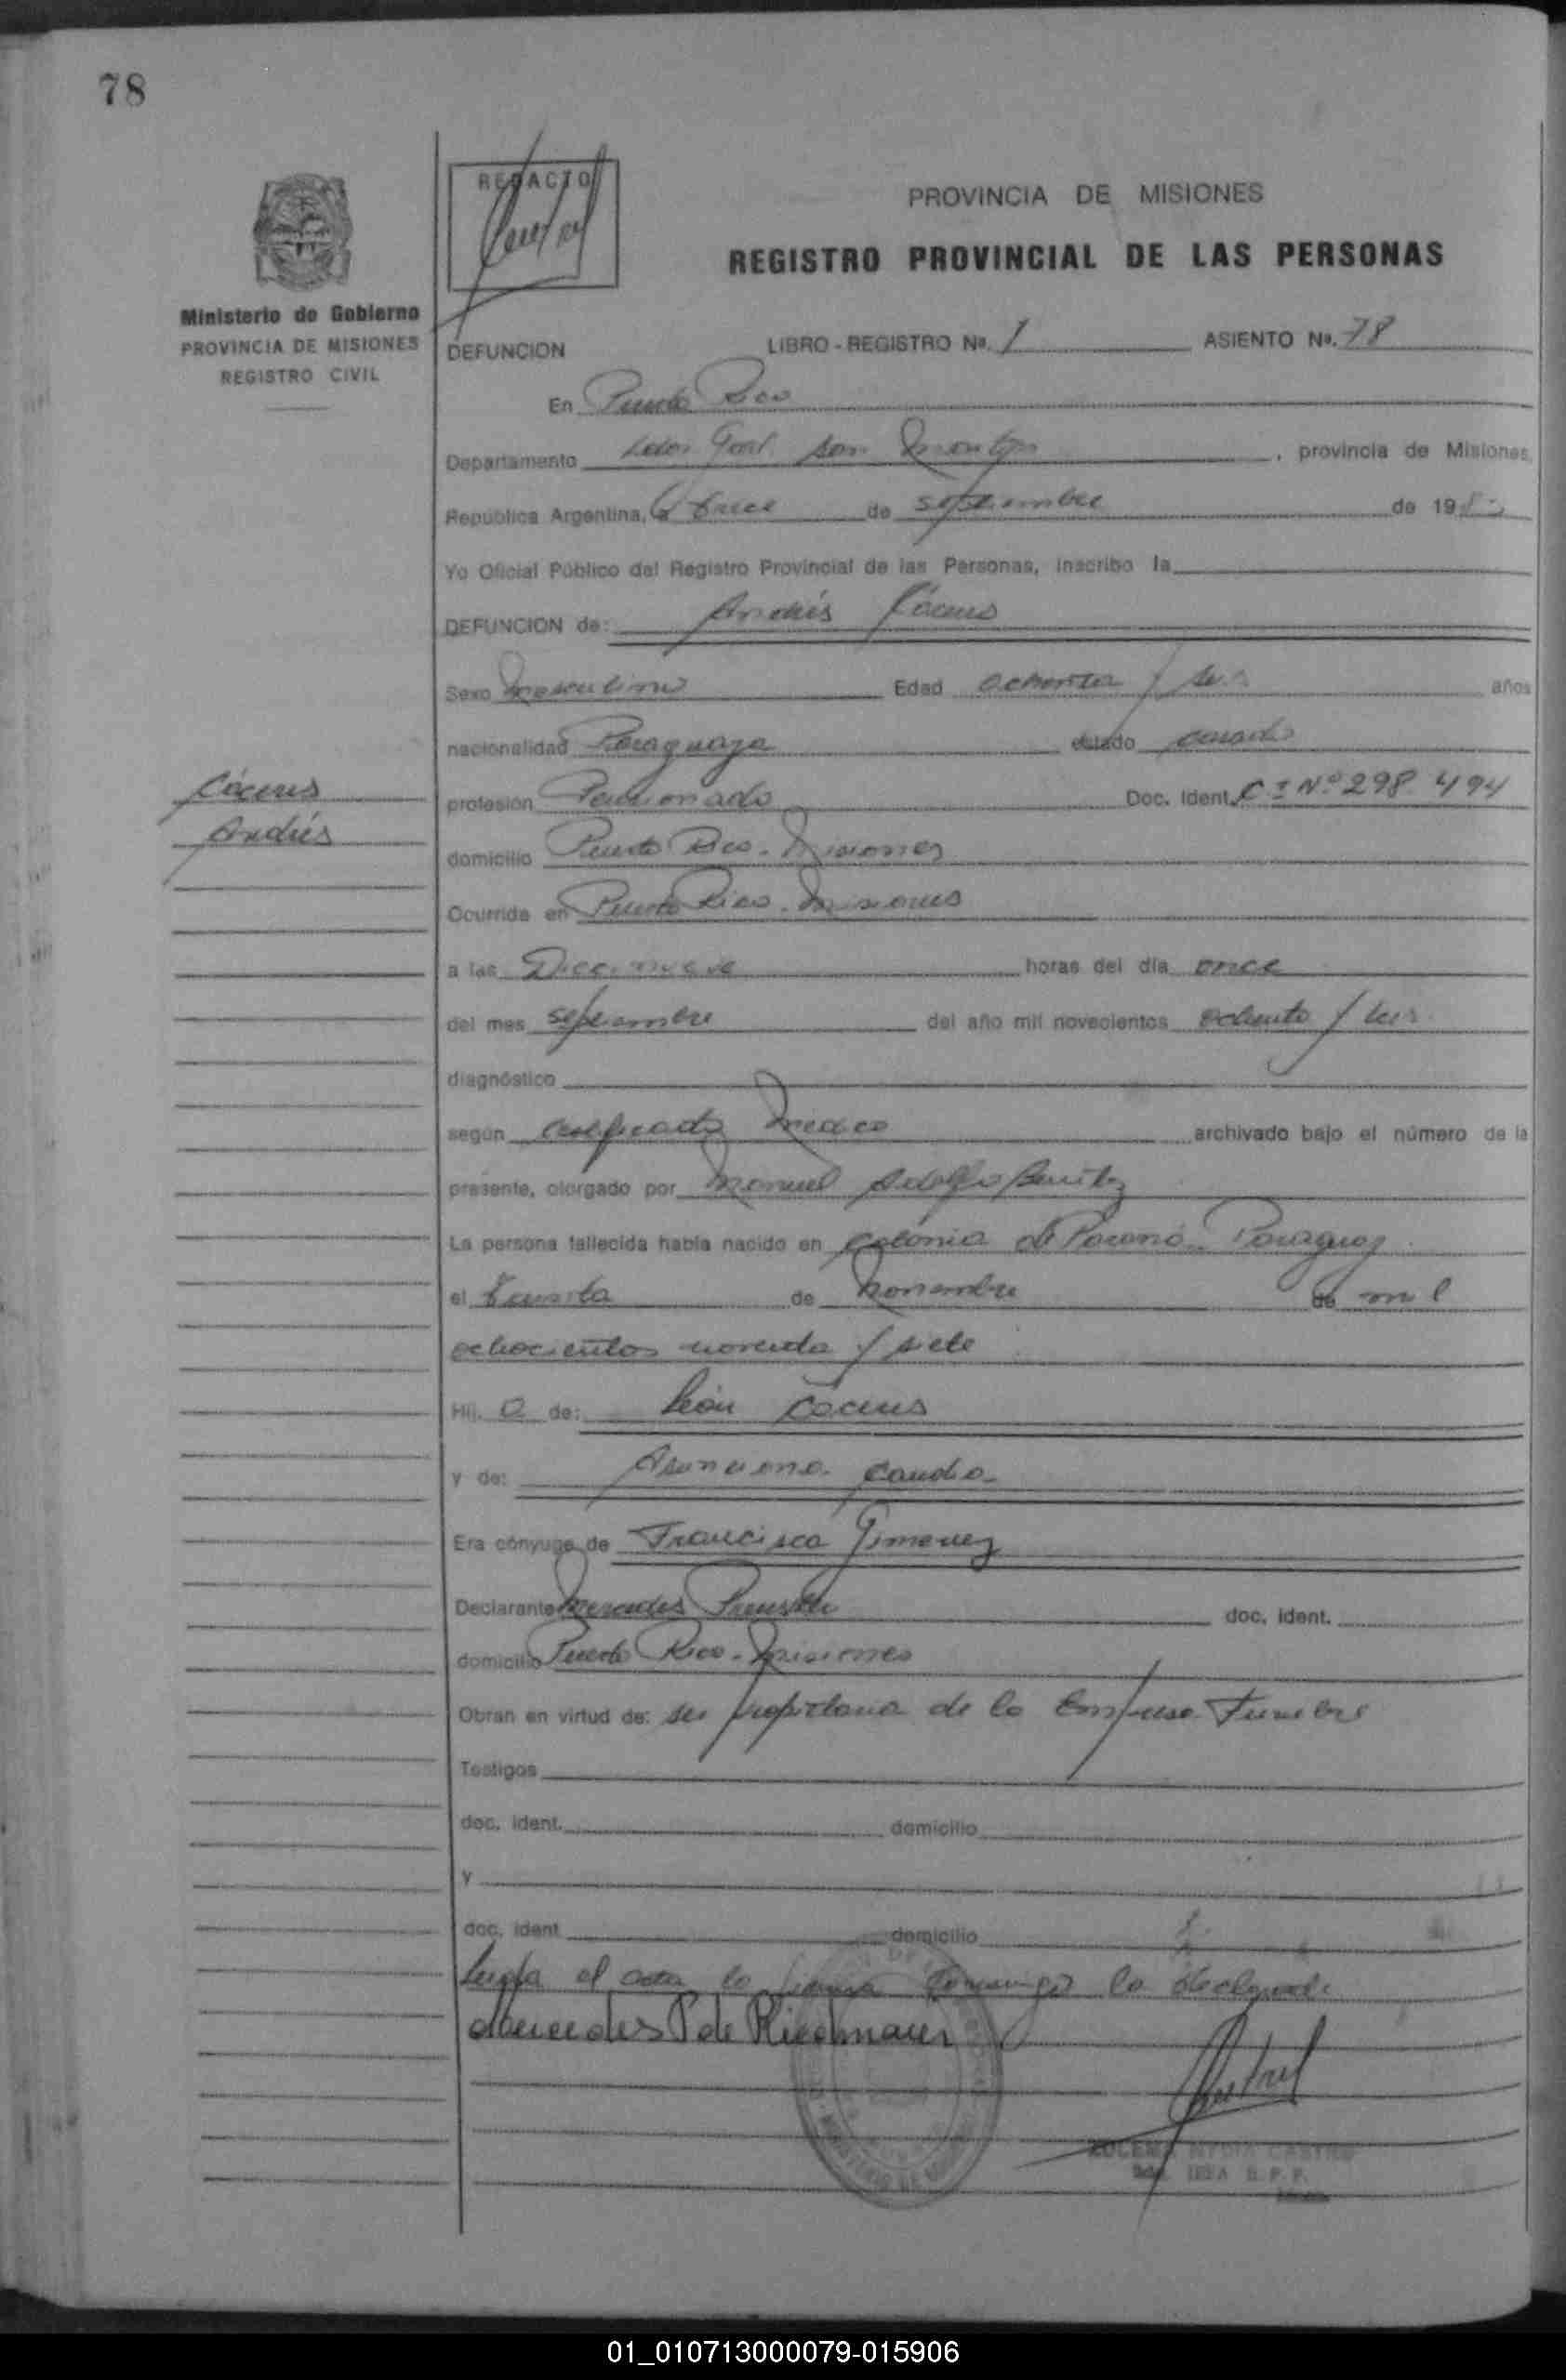 78
REDACTO
PROVINCIA DE MISIONES
REGISTRO PROVINCIAL DE LAS PERSONAS
Ministerio de Gobierno
PROVINCIA DE MISIONES
REGISTRO CIVIL
DEFUNCION LIBRO - REGISTRO No. 1 ASIENTO No. 78
En Puerto Rico
Departamento Lddor Gral. San Martín, provincia de Misiones,
República Argentina, a trece de septiembre de 198
Yo Oficial Público del Registro Provincial de las Personas, inscribo la
DEFUNCION de: Andrés Cáceres
Sexo Masculino Edad ochenta y seis años
nacionalidad Paraguaya estado casado
Cáceres
Andrés
profesión Pensionado Doc. Ident. C I Nº 298.494
domicilio Puerto Rico - Misiones
Ocurrida en Puerto Rico - Misiones
a las Diecinueve horas del día once
del mes septiembre del año mil novecientos ochenta y
diagnóstico
según certificado Médico archivado bajo el número de la
presente, otorgado por Manuel Adolfo Benítez
La persona fallecida había nacido en Colonia de Paraná - Paraguay
el treinta de Noviembre de mil
ochocientos noventa y siete
Hij. o de: León Cáceres
y de:
Era cónyuge de Francisca Gimenez
Declarante Mercedes doc. ident.
domicilio Puerto Rico - Misiones
Obran en virtud de: ser propietaria de la Empresa Funebre
Testigos
doc. ident. domicilio
y
doc. ident domicilio
Leída el acta la firma conmigo la declarante
Mercedes P de Riedmaier
CASTRO
01_010713000079-015906